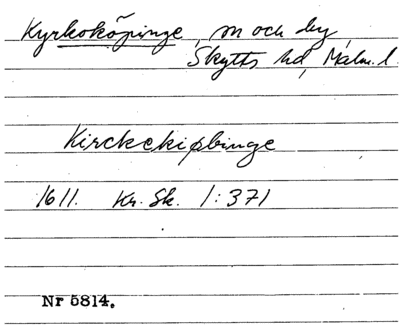 Kyrkoköpinge, sn och by,
Skytts hd, Malm. l.
Kirckekipbinge
1611. Kr. Sk. 1:371
Nr 5814.